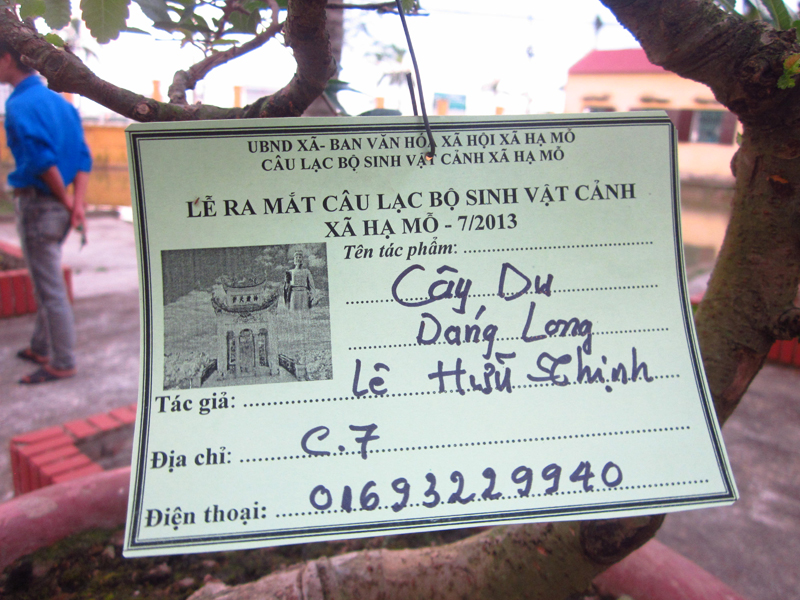 UBND XÃ- BAN VĂN HÓA XÃ HỘI XÃ HẠ MỖ
CÂU LẠC BỘ SINH VẬT CẢNH XÃ HẠ MỖ
LỄ RA MẮT CÂU LẠC BỘ SINH VẬT CẢNH
XÃ HẠ MỖ - 7/2013
Tên tác phẩm:
Cây Du
Dáng Long
Tác giả: Lê Hữu Thịnh
Địa chỉ: C.7
Điện thoại: 01693229940